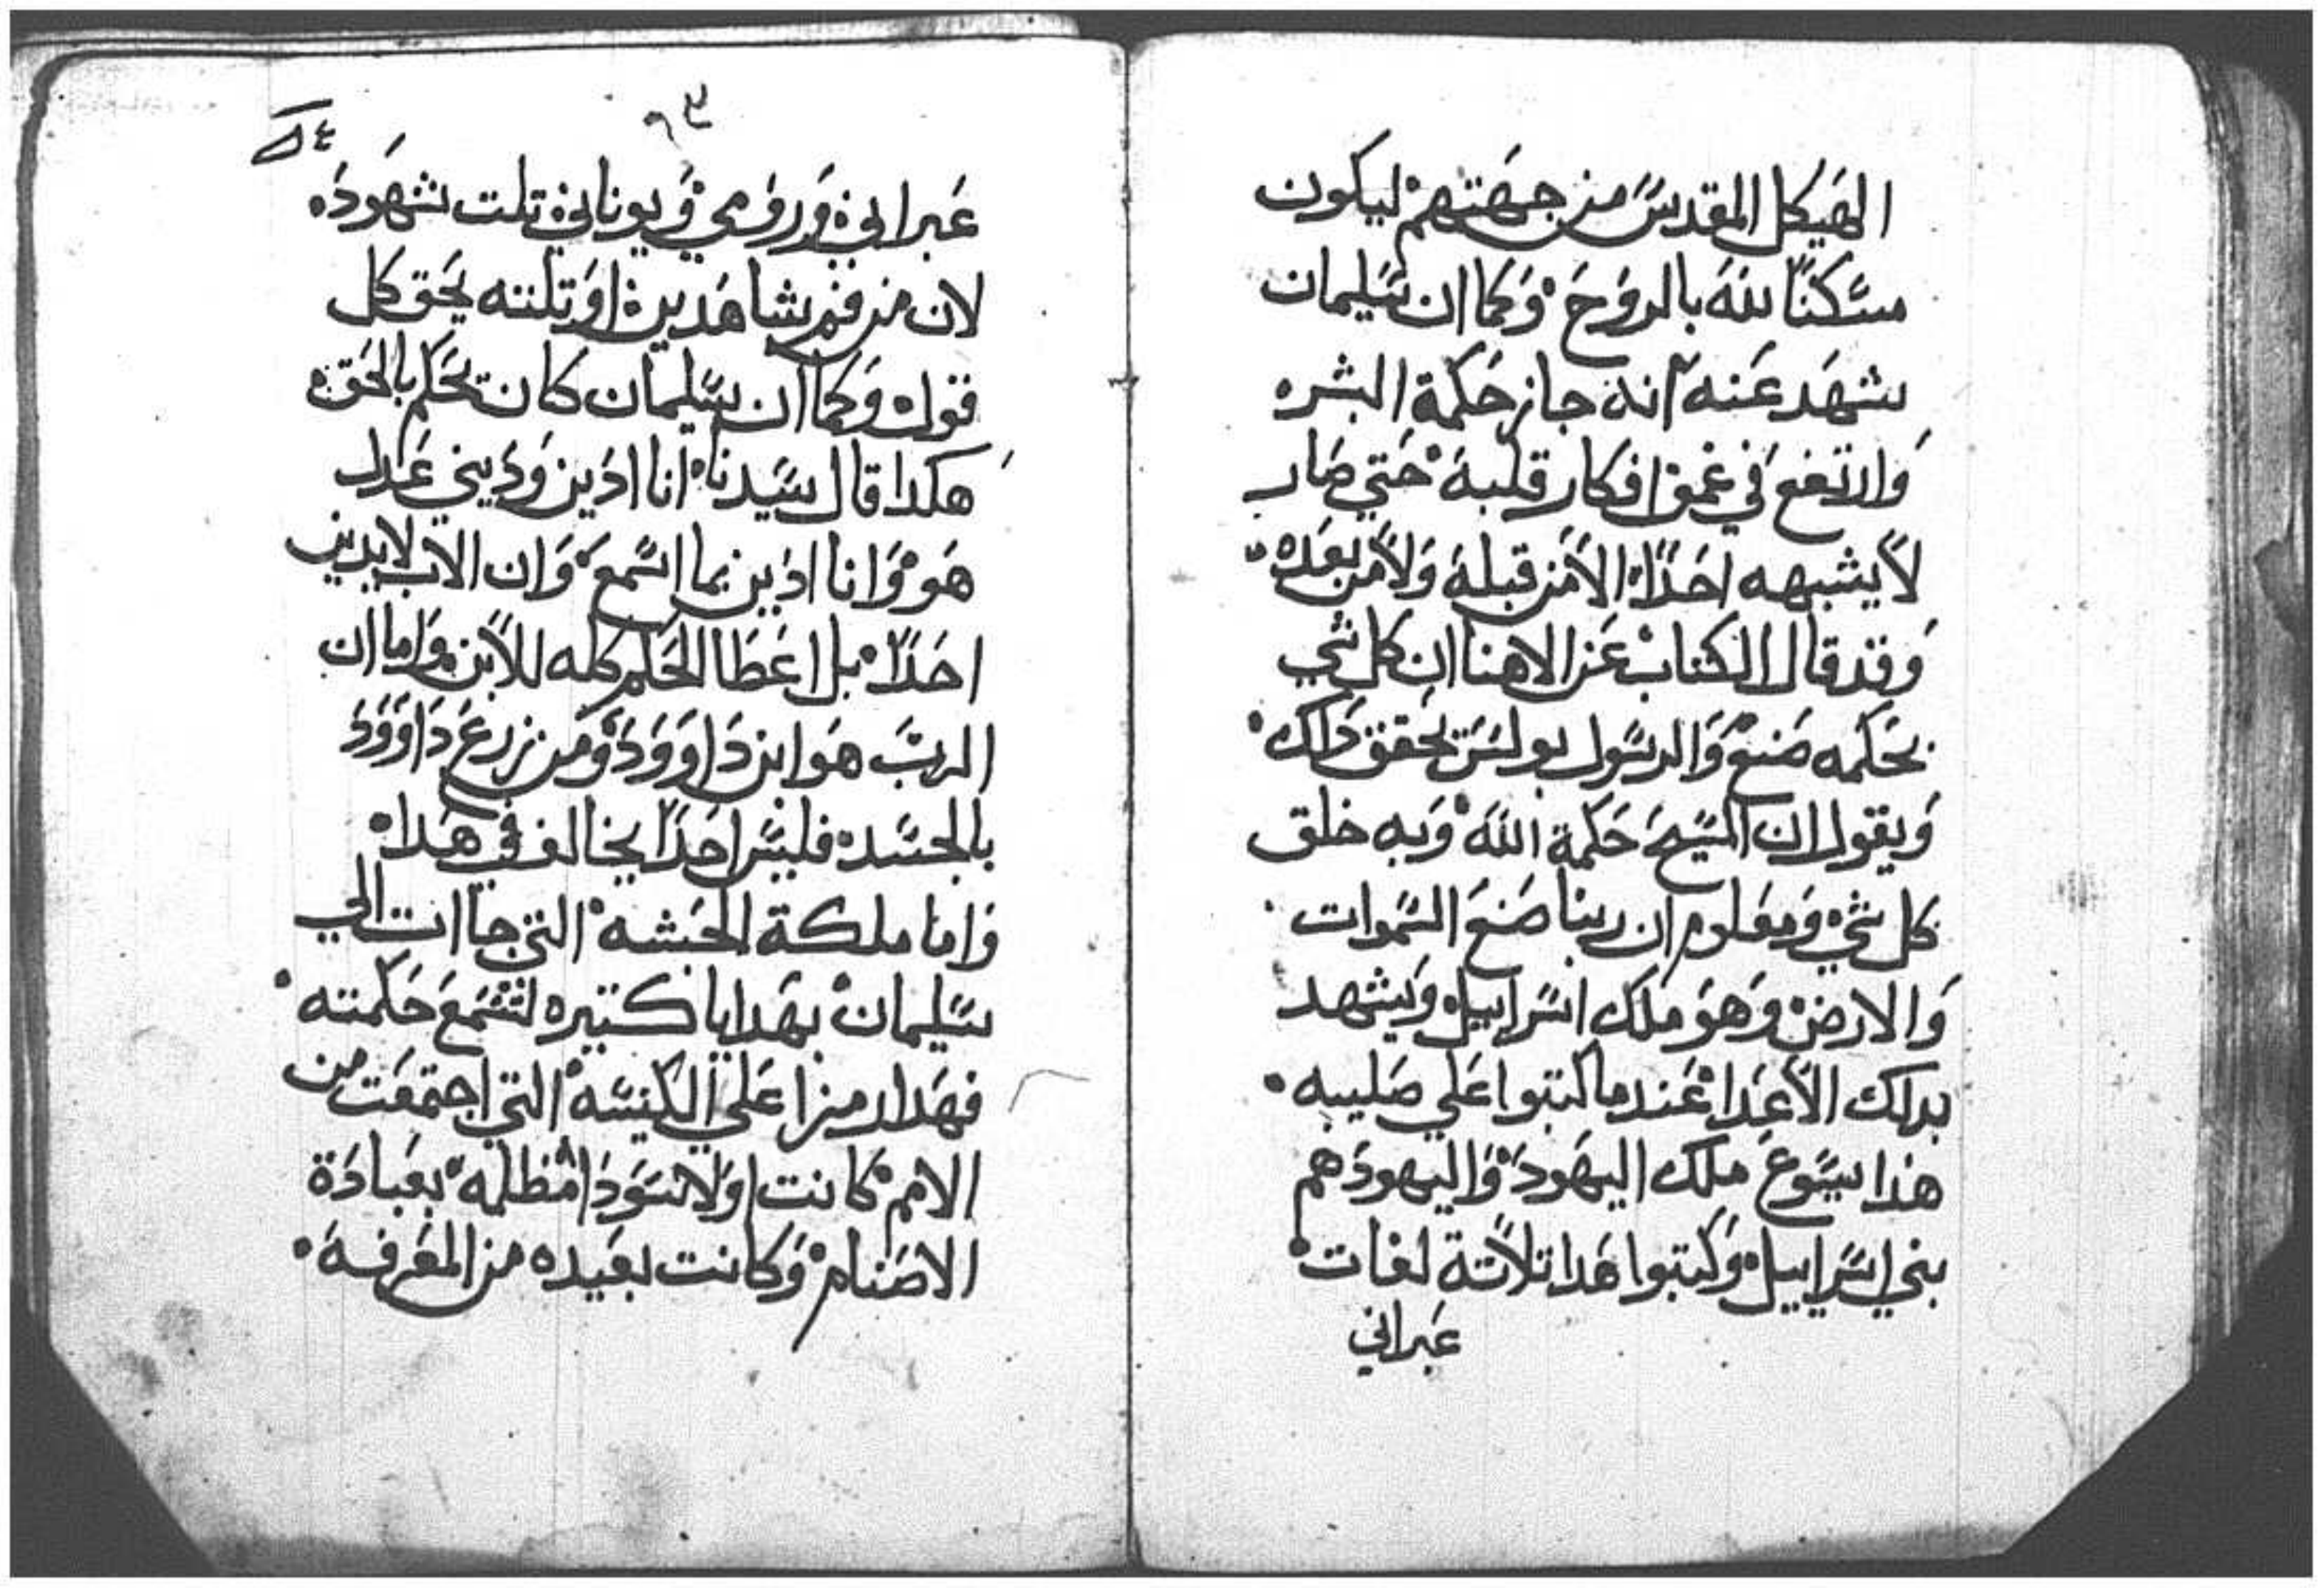 الهيكل المقدس من جهتهم ليكون
مسكنًا لله بالروح وكما ان سليمان
شهد عنه انه جاز حكمة البشر
وارتفع في عمق افكار قلبه حتي صار
لا يشبهه احدًا لا من قبله ولا من بعده
وقد قال الكتاب عن الاهنا ان كل شي
بحكمه صنع والرسول بولس تحقق داك
ويقول ان المسيح حكمة الله وبه خلق
كل شي ومعلوم ان ربنا صنع السموات
والارض وهو ملك اسراييل ويشهد
بدلك الاعدا عندما كتبوا علي صليبه
هدا يسوع ملك اليهود واليهود هم
بني اسراييل وكتبوا هدا تلاتة لغات
عبراني
عبراني ورومي ويوناني تلت شهود
لان من فم شاهدين او تلته يحق كل
قول وكما ان سليمان كان تحكم بالحق
هكدا قال سيدنا انا ادين وديني عدل
هو وانا ادين بما اسمع وان الاب لا يدين
احدًا بل اعطا الحكم كله للابن واما ان
الرب هو ابن داوود ومن زرع داوود
بالجسد فليس احدًا يخالف في هدا
واما ملكة الحبشه التي جاات الي
سليمان بهدايا كتيره لتسمع حكمته
فهدا رمزا علي الكنيسه التي اجتمعت من
الامم كانت اولا سودا مظلمه بعبادة
الاصنام وكانت بعيده من المعرفه